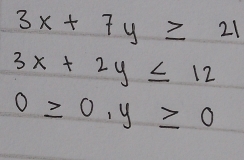 3x + 7y ≥ 21
3x + 2y ≤ 12
0 ≥ 0, y ≥ 0